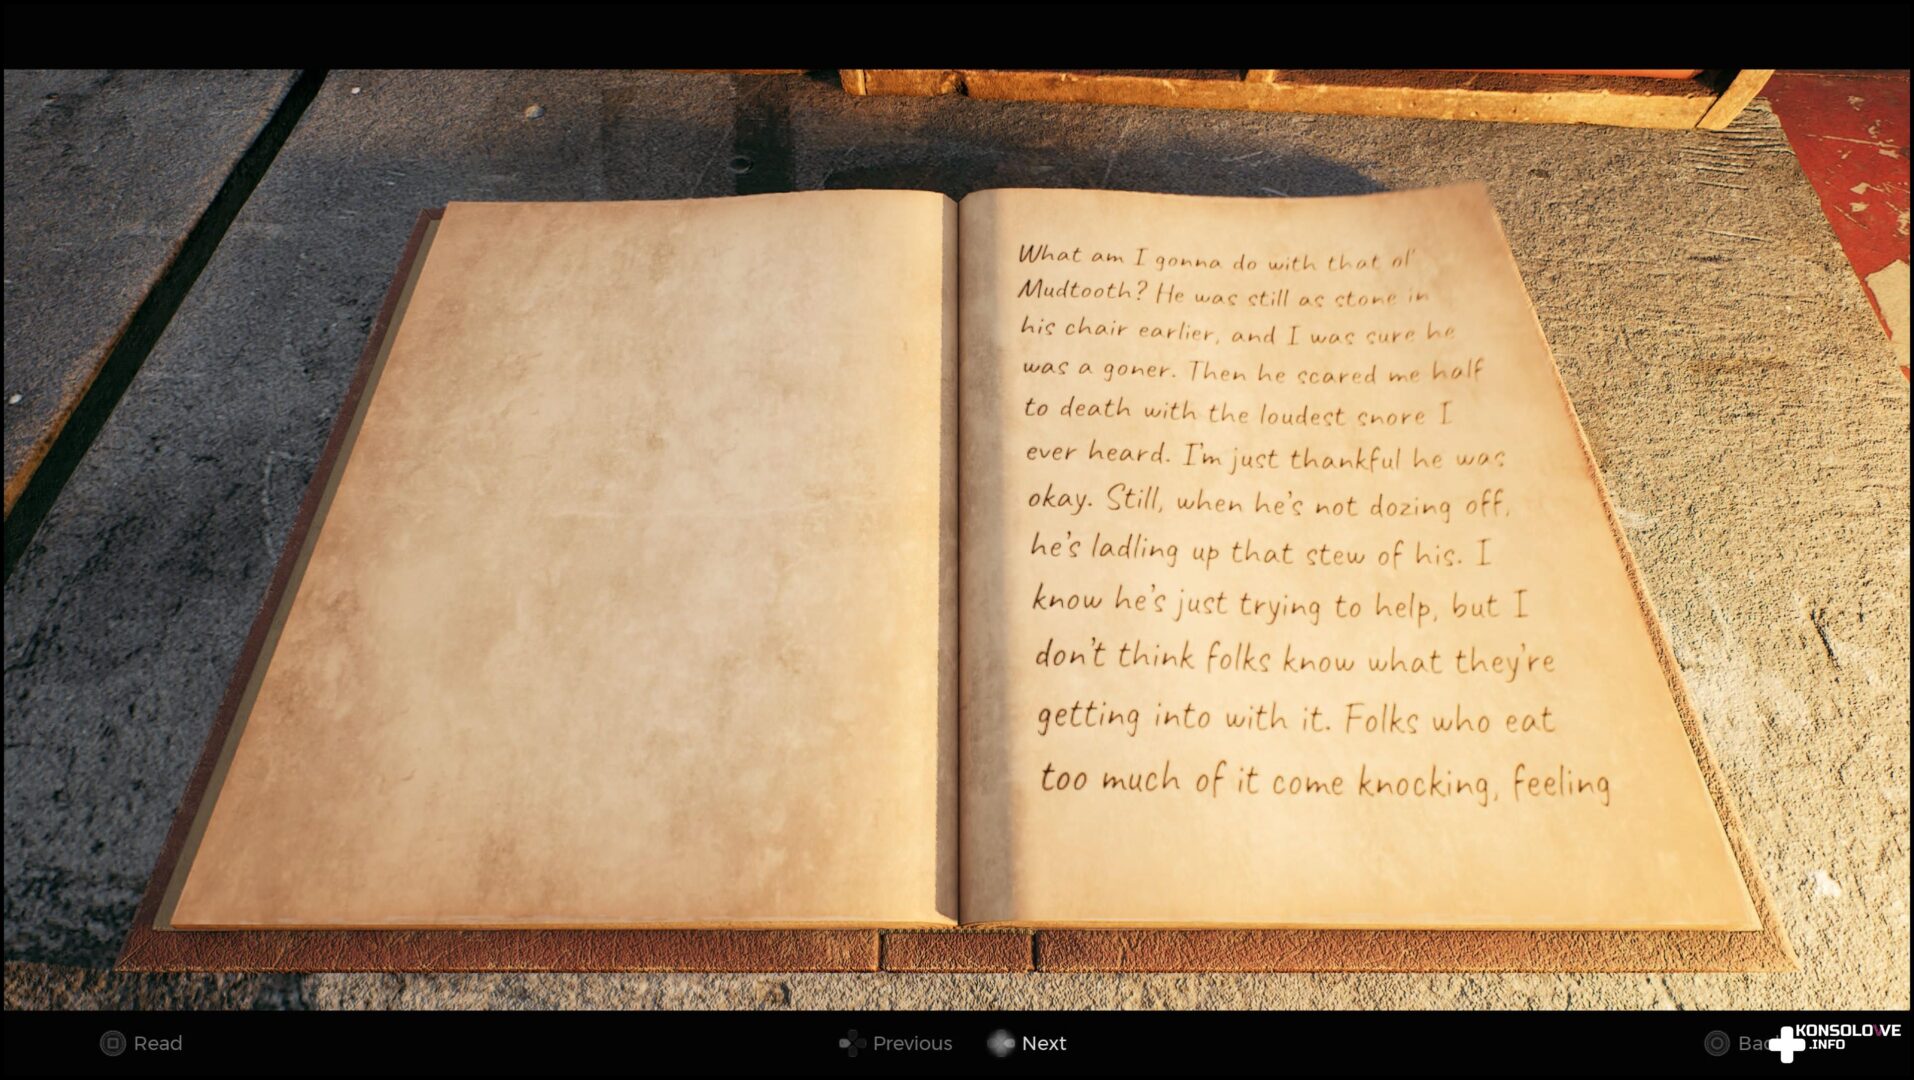 What am I gonna do with that ol'
Mudtooth? He was still as stone in
his chair earlier, and I was sure he
was a goner. Then he scared me half
to death with the loudest snore I
ever heard. I'm just thankful he was
okay. Still, when he's not dozing off,
he's ladling up that stew of his. I
know he's just trying to help, but I
don't think folks know what they're
getting into with it. Folks who eat
too much of it come knocking, feeling
Read
Previous
Next
KONSOLOWE
.INFO